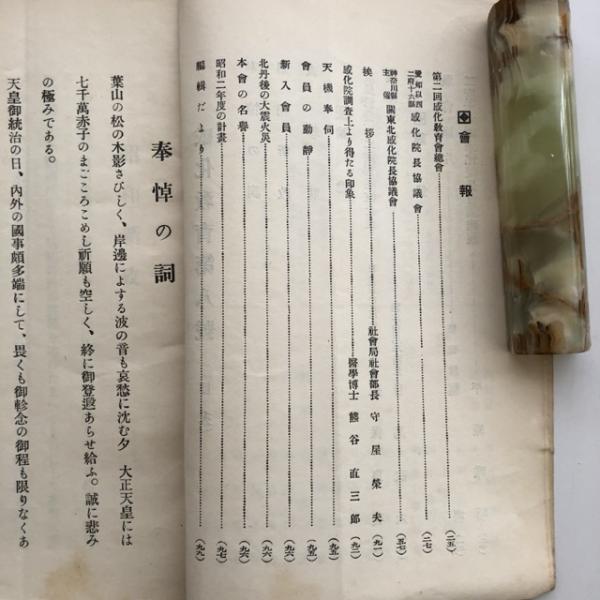 會報
第二回感化敎育會總會 (二五)
愛知以西二府十六縣 感化院長協議會 (二七)
神奈川縣主催 關東北感化院長協議會 (五七)
挨拶 社會局社會部長 守屋榮夫 (九一)
感化院調査上より得たる印象 醫學博士 熊谷直三郎 (九二)
天機奉伺 (九五)
會員の動靜 (九五)
新入會員 (九六)
北丹後の大震火災 (九六)
本會の名譽 (九六)
昭和二年度の計畫 (九七)
編輯だより (九九)
奉悼の詞
葉山の松の木影さびしく、岸邊によする波の音も哀愁に沈む夕 大正天皇には
七千萬赤子のまごころこめし祈願も空しく、終に御登遐あらせ給ふ。誠に悲み
の極みである。
天皇御統治の日、內外の國事頗多端にして、畏くも御軫念の御程も限りなくあ